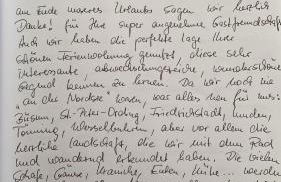 am Ende unseres Urlaubs sagen wir herzlich
Danke! für Ihre super angenehme Gastfreundschaft
Auch wir haben die perfekte Lage Ihrer
schönen Ferienwohnung genutzt, diese sehr
interessante, abwechslungsreiche, wunderschöne
Gegend kennen zu lernen. Da wir noch nie
"an der Nordsee" waren, war alles neu für uns:
Büsum, St.-Peter-Ording, Friedrichstadt, Lunden,
Tönning, Wesselburen, aber vor allem die
herrliche Landschaft, die wir mit dem Rad
und wandernd erkundet haben. Die vielen
Schafe, Gänse, Kraniche, Eulen, Kühe... werden